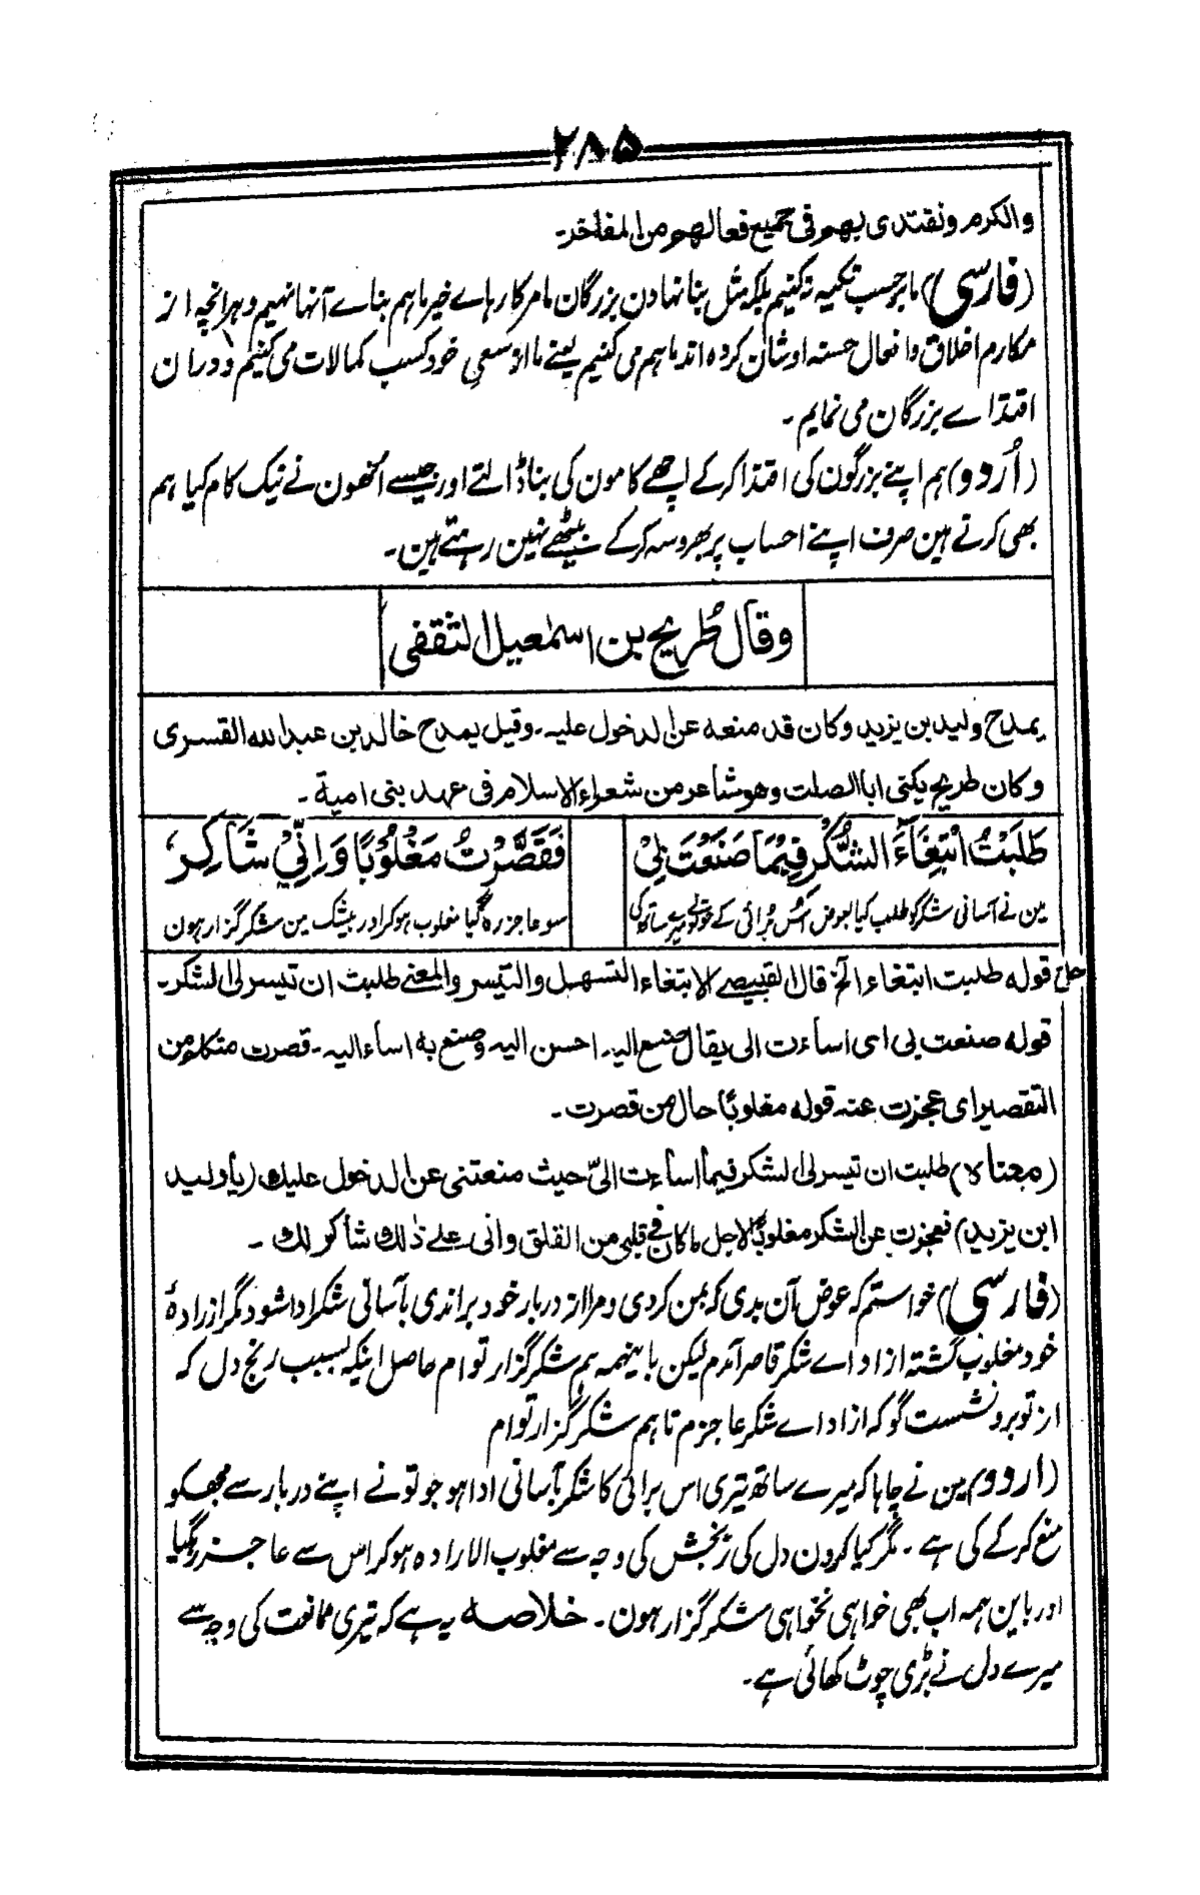 ۲۸۵
والکرم ونقتدی بهم فی جمیع فعالهم من المفاخر۔
(فارسی) ما بر حسب تکیہ نہ کنیم بلکہ مثل بنا نہادن بزرگان ما مر کارہاے خیر ما ہم بناے آنہا نہیم و ہرانچہ از
مکارم اخلاق و افعال حسنہ اوشان کردہ اند ما ہم می کنیم یعنے ما از سعیِ خود کسب کمالات می کنیم و دران
اقتداے بزرگان می نمایم۔
(اُردو) ہم اپنے بزرگون کی اقتدا کرکے اچھے کامون کی بنا ڈالتے اور جیسے انھون نے نیک کام کیا ہم
بھی کرتے ہین صرف اپنے احساب پر بھروسہ کرکے بیٹھے نہین رہتے ہین۔
وقال طُریح بن اسمٰعیل الثقفی
یمدح ولید بن یزید وکان قد منعه عن الدخول علیه۔ وقیل یمدح خالد بن عبد الله القسری
وکان طریح یکنی ابا الصلت وهو شاعر من شعراء الاسلام فی عهد بنی امیة۔
طَلَبْتُ ابْتِغَآءَ الشُّکْرِ فِیْمَا صَنَعْتَ بِیْ فَقَصَّرْتُ مَغْلُوْبًا وَاِنِّیْ شَاکِرٗ
مین نے آسانی شکر کو طلب کیا بعوض اُس بُرائی کے جو تونے میرے ساتھ کی سو عاجز رہ گیا مغلوب ہوکر اور بیشک مین شکر گزار ہون
حل قوله طلبت ابتغاء الخ قال القبیصے الابتغاء التسهل والتیسر والمعنے طلبت ان تیسر لی الشکر۔
قوله صنعت بی ای اسأت الی یقال صنع الیه احسن الیه وصنع به اساء الیه۔ قصرت متکلم من
التقصیر ای عجزت عنه قوله مغلوبًا حال من قصرت۔
(معناه) طلبت ان تیسر لی الشکر فیما اسأت الیّ حیث منعتنی عن الدخول علیك (یا ولید
ابن یزید) فعجزت عن الشکر مغلوبًا لاجل ما کان فی قلبی من القلق وانی علے ذلك شاکر لك۔
(فارسی) خواستم کہ عوض آن بدی کہ بمن کردی و مرا از دربار خود براندی بآسانی شکر ادا شود مگر از ارادۂ
خود مغلوب گشتہ از اداے شکر قاصر آمدم لیکن با ینہمہ ہم شکر گزار تو ام حاصل اینکہ بسبب رنج دل کہ
از تو برو نشست گو کہ از اداے شکر عاجزم تا ہم شکر گزار تو ام
(اردو) مین نے چاہا کہ میرے ساتھ تیری اس برائی کا شکر بآسانی ادا ہو جو تونے اپنے دربار سے مجھکو
منع کرکے کی ہے۔ مگر کیا کرون دل کی رنجش کی وجہ سے مغلوب الارادہ ہوکر اس سے عاجز رہ گیا
اور با ین ہمہ اب بھی خواہی نخواہی شکر گزار ہون۔ خلاصہ یہ ہے کہ تیری ممانعت کی وجہ سے
میرے دل نے بڑی چوٹ کھائی ہے۔